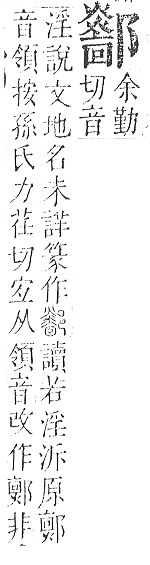 余勤
切音
淫說文地名未詳篆作讀若淫泝原鄭
音領按孫氏力荏切宐从領音改作鄭非